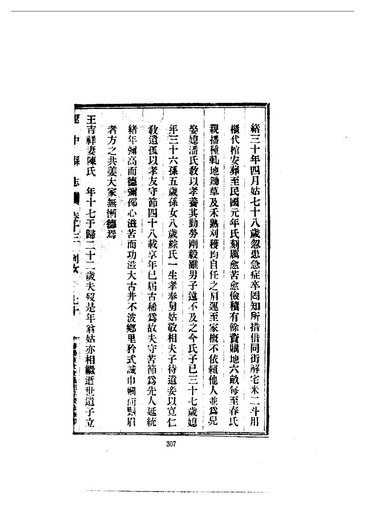 緒三十年四月姑七十八歲忽患急症卒罔知所措借同街解宅米二斗用
櫬代棺安葬至民國元年氏剋厲愈苦愈儉積有餘資購地六畝每至春氏
親播種軋地鋤草及禾熟刈穫均自任之肩運至家概不依賴他人並為兒
娶媳潘氏教以孝養其勤勞剛毅雖男子遠不及之今氏子已三十七歲媳
年三十六孫五歲孫女八歲綜氏一生孝奉舅姑敬相夫子待遺妾以寬仁
教遺孤以孝友守節四十八載享年已屆古稀為故夫守苦節為先人延統
緒年彌高而德彌邵心滋苦而功滋大古井不波鄉里矜式誠巾幗而鬚眉
者方之共姜大家無慚德焉
王吉祥妻陳氏　年十七于歸二十二歲夫歿是年翁姑亦相繼逝世遺子立
中縣志 卷十三
307